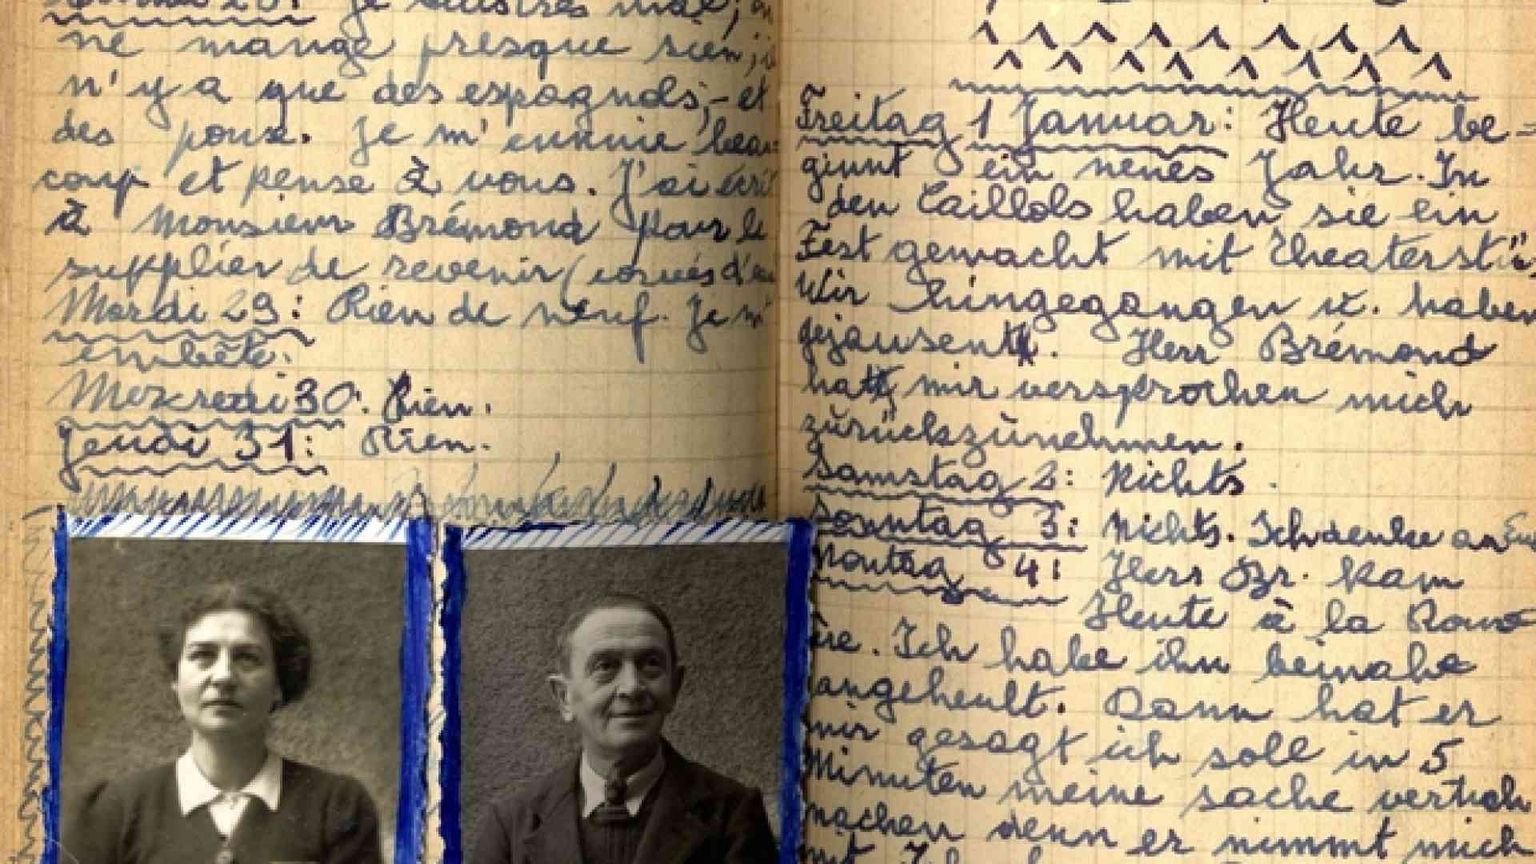 je suis très mal, on
ne mange presque rien, il
n'y a que des espagnols, et
des poux. Je m'ennuie beau-
coup et pense à vous. J'ai écrit
à Monsieur Brémond pour le
supplier de revenir
Mardi 29: Rien de neuf. Je m'
embête.
Mercredi 30. Rien.
Jeudi 31: Rien.
Freitag 1 Januar: Heute be-
ginnt ein neues Jahr. In
den Caillols haben sie ein
Fest gemacht mit Theaterstü
Wir hingegangen u. haben
gejausent. Herr Brémond
hatt mir versprochen mich
zürückzünehmen.
Samstag 2: Nichts.
Sonntag 3: Nichts. Ich denke an
Montag 4: Herr Br. kam
Heute à la Rouv
ère. Ich habe ihn beinahe
angeheult. Dann hat er
mir gesagt ich soll in 5
Minuten meine sache
machen denn er nimmt mich
mit. Ich